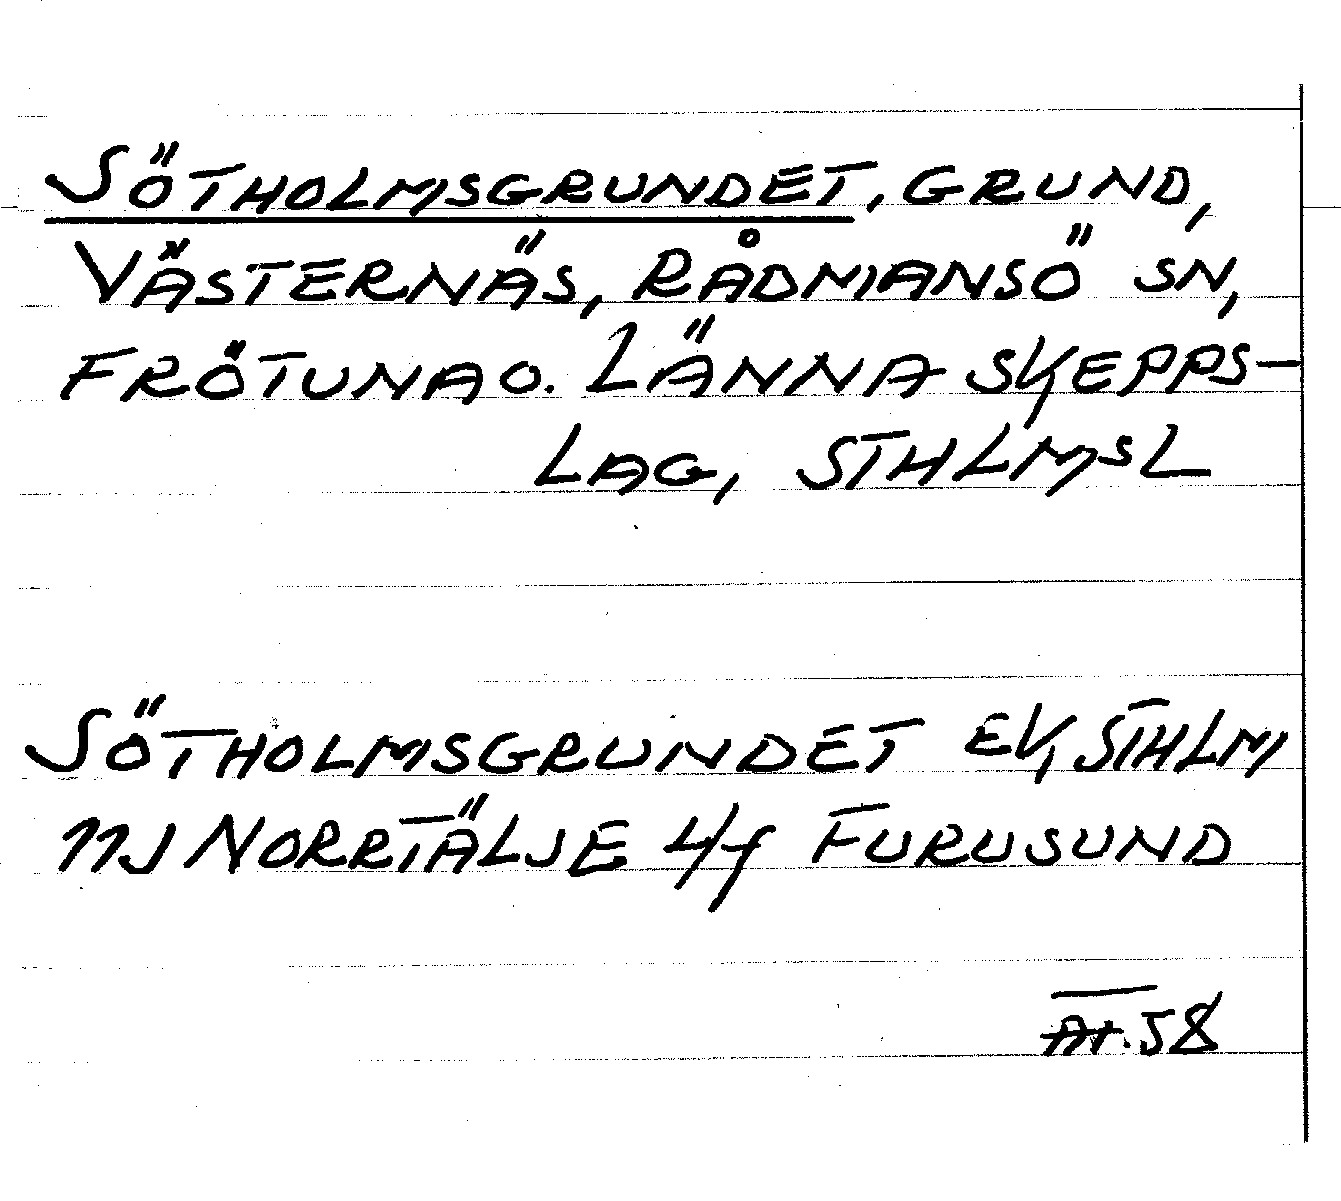 SÖTHOLMSGRUNDET, GRUND,
VÄSTERNÄS, RÅDMANSÖ SN,
FRÖTUNA O. LÄNNA SKEPPS-
LAG, STHLMSL
SÖTHOLMSGRUNDET EK, STHLM
11J NORRTÄLJE 4f FURUSUND
58